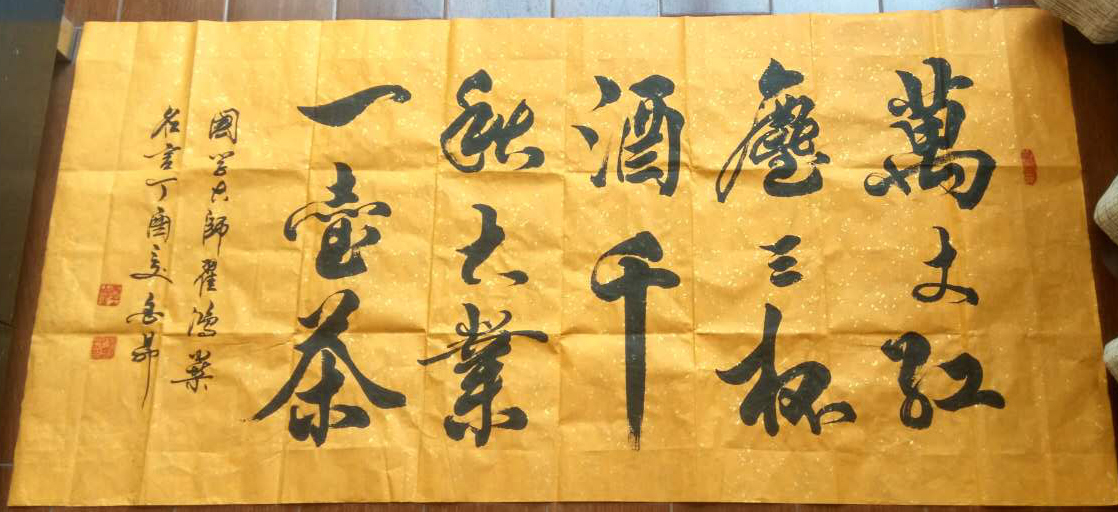 萬丈红
塵三杯
酒千
秋大業
一壺茶
國学大師翟鴻燊
名言丁酉夏